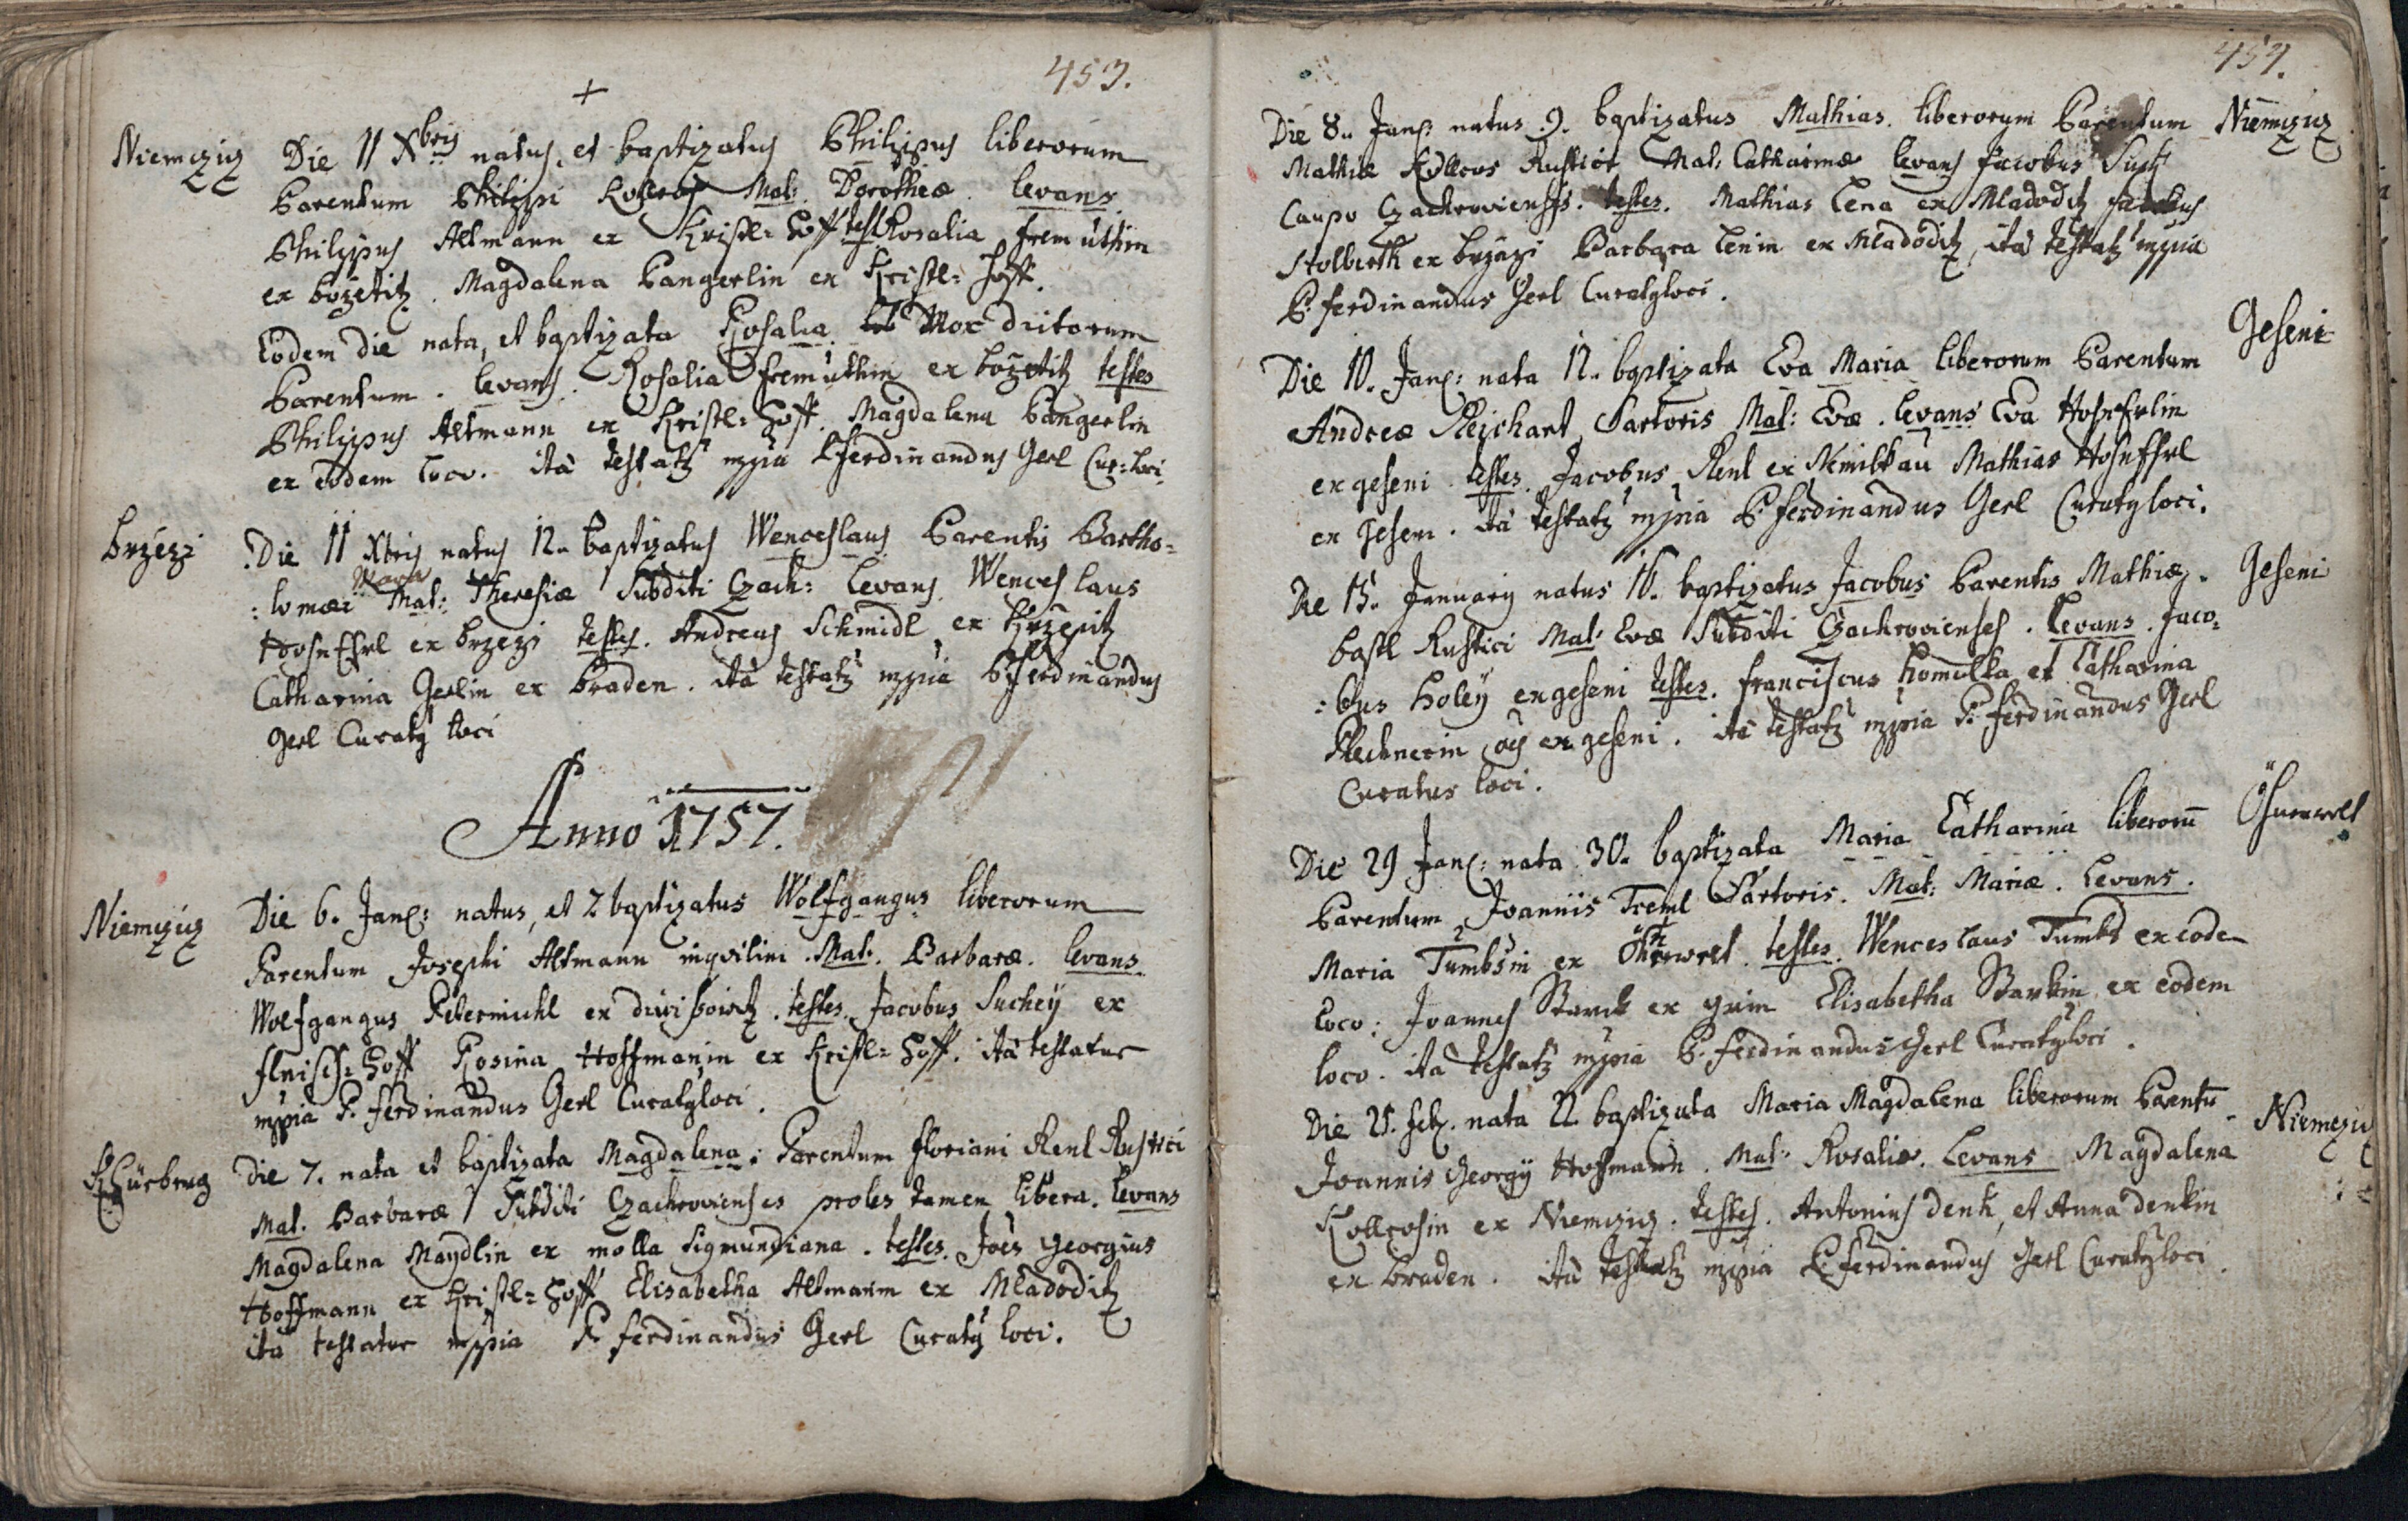 453.
+
Niemcziz Die 11 Xbris natus, et baptizatus Philippus liberorum
Parentum Philippi Kollros Mat: Dorotheæ. levans
Philippus Altmann ex Kristl: Hoff test Rosalia Fremuthin
ex božetitz. Magdalena Pangerlin ex Kristl: Hoff.
Eodem die nata, et baptizata Rosalia Mox dictorum
Parentum. levans. Rosalia Fremuthin ex božetitz testes
Philippus Altmann ex Kristl: Hoff. Magdalena Pangerlin
ex eodem loco. ità testatz mppia P Ferdinandus Gerl Cur: loci.
brzezi Die 11 Xbris natus 12. baptizatus Wenceslaus Parentis Bartho=
:lomæi Mat: Theresiæ Subditi Czach: levans Wenceslaus
ex brzezi testes. Andreas Schmidl ex
Catharina Gerlin ex braden. ità testatz mppia P Ferdinandus
Gerl Curatq loci
Anno 1757.
Niemcziz Die 6. Jan: natus, et 7 baptizatus Wolfgangus liberorum
Parentum Josephi Altmann inqvilini. Mat. Barbaræ. levans
Wolfgangus Petermichl ex testes. Jacobus Suchey ex
Hoff Rosina Hoffmanin ex Kristl: Hoff. ità testatur
mppia P. Ferdinandus Gerl Curatq loci.
Die 7. nata et baptizata Magdalena: Parentum Floriani Renl Rustici
Mat. Barbaræ Subditi Czachrovienses proles tamen libera. levans
Magdalena Maydlin ex molla Sigmundiana. testes. Joës Georgius
Hoffmann ex Kristl: Hoff Elisabetha Altmanin ex Mladoditz
ita testatur mppia P. Ferdinandus Gerl Curatq loci.
454.
Die 8. Jan: natus .9. baptizatus Mathias. liberorum Parentum Niemcziz
Mathiæ Kollros Rustici Mat: Catharinæ levans Jacobus
Caupo Czachroviensis. testes. Mathias Lena ex Mladoditz
ex brzezi Barbara Lenin ex Mladoditz, ità testatz mppia
P. Ferdinandus Gerl Curatq loci.
Die 10. Jan: nata 12. baptizata Eva Maria liberorum Parentum Geseni
Andreæ Reichart Sartoris Mat: Evæ. levans Eva
ex geseni. testes. Jacobus Renl ex Nemilkau Mathias
ex geseni. ità testatz mppia P. Ferdinandus Gerl Curatq loci.
Die 15. January natus 16. baptizatus Jacobus Parentis Mathiæ Geseni
bastl Rustici Mat: Evæ Subditi Czachrovienses. Levans. Jaco=
:bus Holey ex geseni testes. Franciscus Homolka et Catharina
Plechnerin ex geseni. ità testatz mppia P. Ferdinandus Gerl
Curatus loci.
Die 29 Jan: nata 30. baptizata Maria Catharina liberorū
Parentum Joannis Treml Sartoris. Mat: Mariæ. Levans.
Maria Tumbsin ex testes. Wenceslaus Tumbs ex eode
loco: Joannes Starck ex grim Elisabetha Starkin ex eodem
loco. ità testatz mppia P. Ferdinandus Gerl Curatq loci.
Die 21. feb. nata 22 baptizata Maria Magdalena liberorum Parentū Niemcziz
Joannis Georgÿ Hofmann. Mat: Rosaliæ. Levans Magdalena
Kollrosin ex Niemcziz. testes. Antonius denk, et Anna denkin
ex braden. ità testatz mppia P. Ferdinandus Gerl Curatq loci.